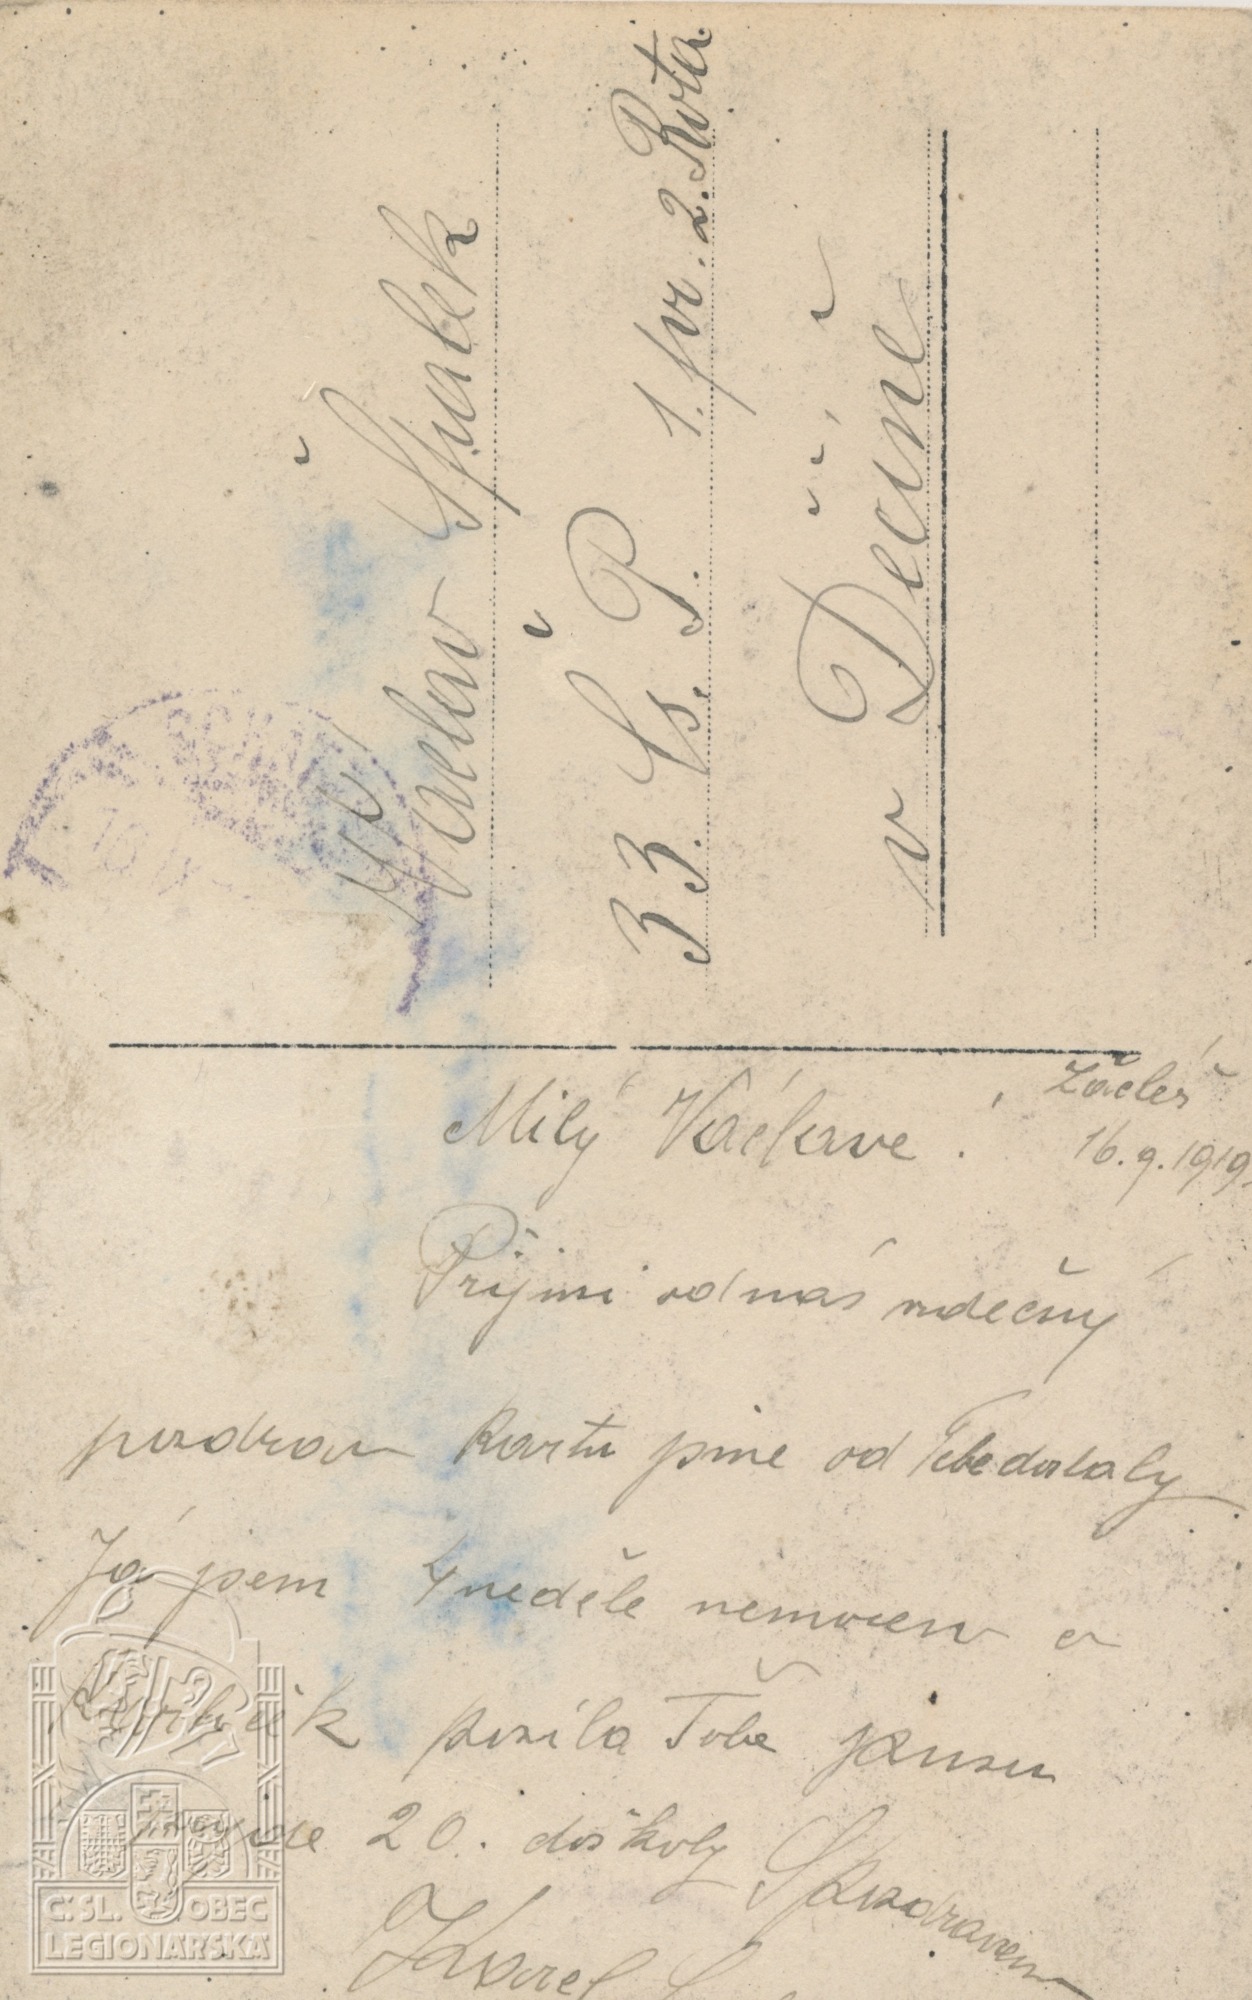 Václav Špatek
33 Čs. P. 1. pr. 2. Rota.
v Děčíně
Milý Václave.
Žacléř
16.9.1919.
Přijmi od nás srdečný
pozdrav Kartu jsme od Tebe dostaly
Já jsem 4 neděle nemocen a
posílá Tobě pusu
20. do školy S pozdravem
Karel
Č. SL. OBEC
LEGIONÁŘSKÁ